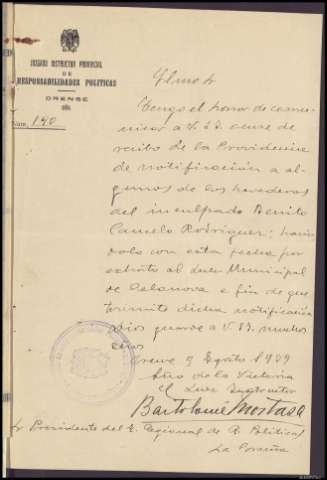 JUZGADO INSTRUCTOR PROVINCIAL
DE
RESPONSABILIDADES POLITICAS
ORENSE
Núm. 190
Ilmo Sr
Tengo el honor de comu-
nicar a V. I. acuse de
recibo de la Providencia
de notificación a al-
gunos de los herederos
del inculpado Benito
Camelo Rodriguez;
dola con esta fecha por
exhorto al Juez Municipal
de Celanova a fin de que
tramite dicha notificación
Dios guarde a V. I. muchos
años
Orense 9 Agosto 1939
Año de la Victoria
El Juez Instructor
Bartolomé Mostaza
Sr Presidente del T. Regional de R. Politicas
La Coruña